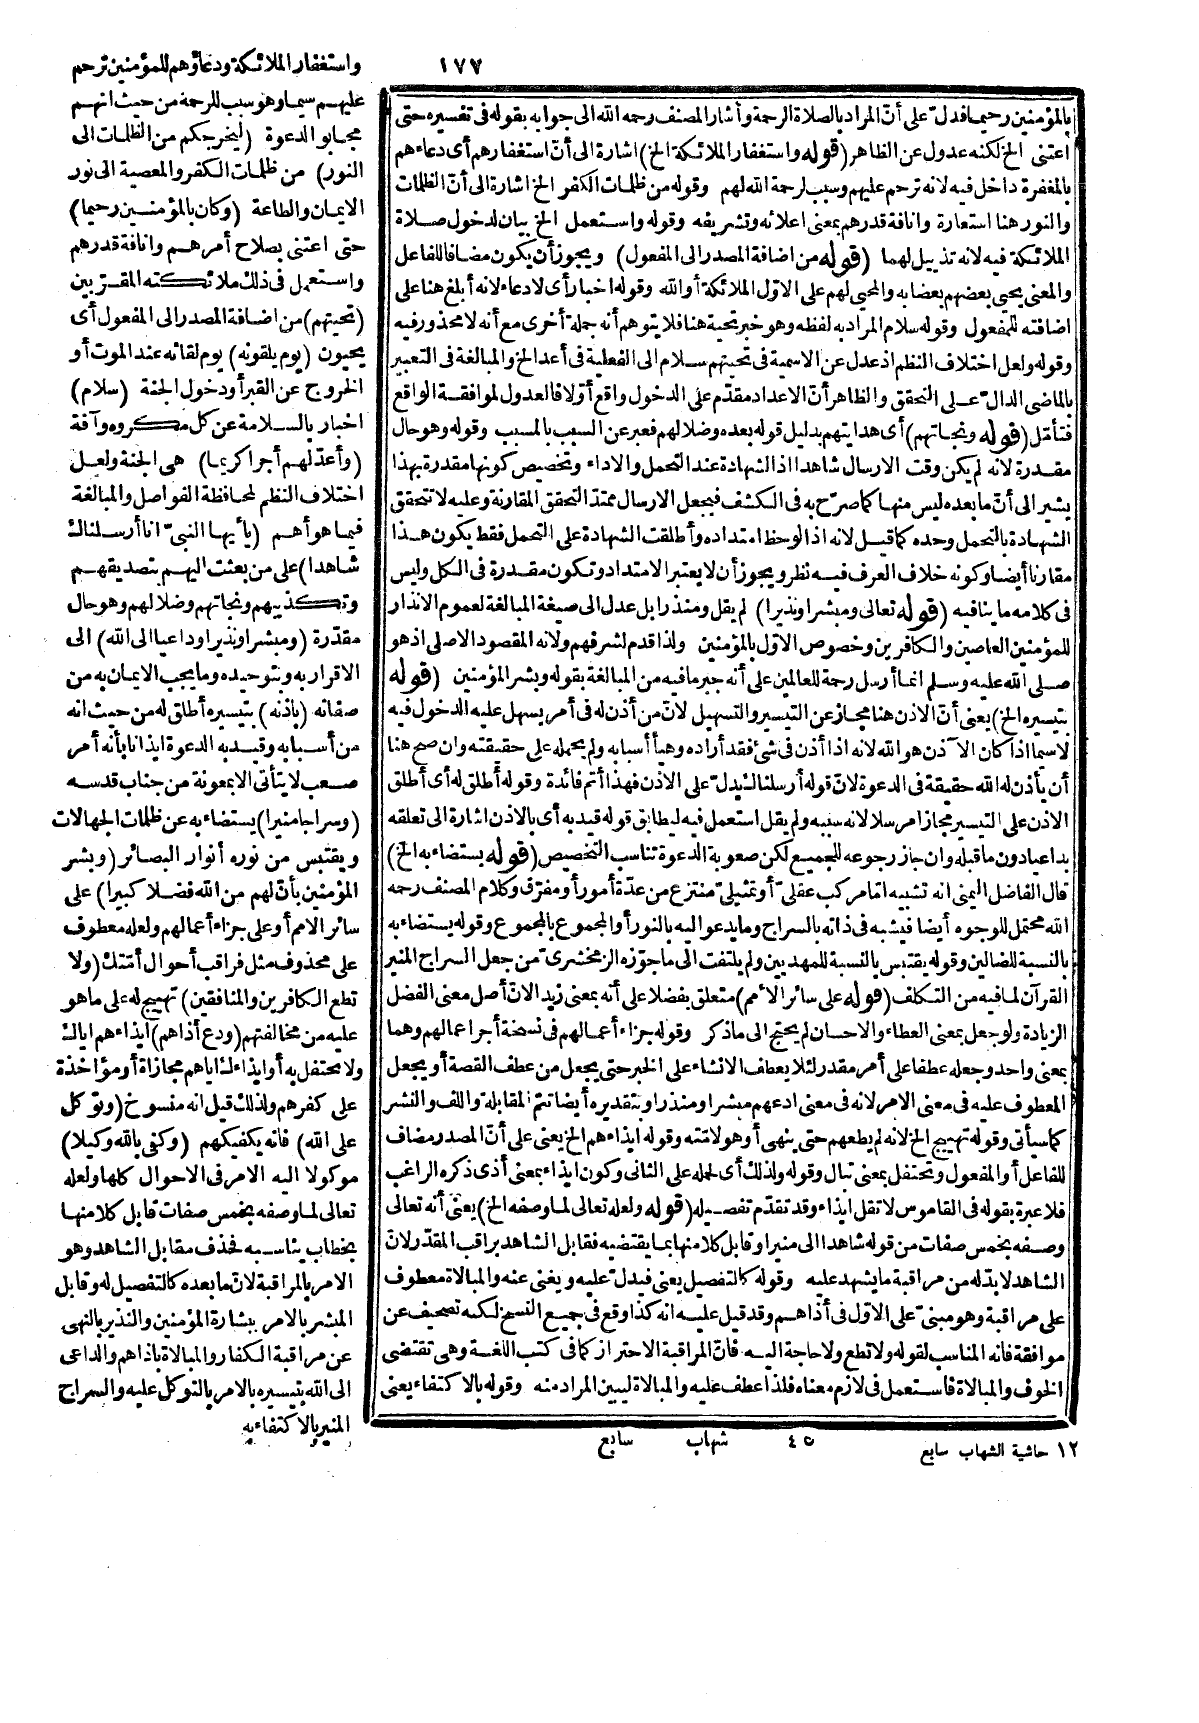 ١٧٧
بالمؤمنين رحيما فدل على أنّ المراد بالصلاة الرحمة وأشار المصنف رحمه الله الى جوابه بقوله فى تفسيره حتى
اعتنى الخ لكنه عدول عن الظاهر (قوله واستغفار الملائكة الخ) اشارة الى أنّ استغفارهم أى دعاءهم
بالمغفرة داخل فيه لانه ترحم عليهم وسبب لرحمة الله لهم وقوله من ظلمات الكفر الخ اشارة الى أنّ الظلمات
والنور هنا استعارة وانافة قدرهم بمعنى اعلائه وتشريفه وقوله واستعمل الخ بيان لدخول صلاة
الملائكة فيه لانه تذييل لهما (قوله من اضافة المصدر الى المفعول) ويجوز أن يكون مضافا للفاعل
والمعنى يحيى بعضهم بعضا به والمحيى لهم على الاوّل الملائكة أو الله وقوله اخبار أى لا دعاء لانه أبلغ هنا على
اضافته للمفعول وقوله سلام المراد به لفظه وهو خبر تحية هنا فلا يتوهم أنه جملة أخرى مع أنه لا محذور فيه
وقوله ولعل اختلاف النظم اذ عدل عن الاسمية فى تحيتهم سلام الى الفعلية فى أعد الخ والمبالغة فى التعبير
بالماضى الدالّ على التحقق والظاهر أنّ الاعداد مقدّم على الدخول واقع أوّلا فالعدول لموافقة الواقع
فتأمّل (قوله ونجاتهم) أى هدايتهم بدليل قوله بعده وضلالهم فعبر عن السبب بالمسبب وقوله وهو حال
مقدرة لانه لم يكن وقت الارسال شاهدا اذ الشهادة عند التحمل والاداء وتخصيص كونها مقدرة بهذا
يشير الى أنّ ما بعده ليس منها كما صرّح به فى الكشف فيجعل الارسال ممتدّا لتحقق المقارنة وعليه لا تتحقق
الشهادة بالتحمل وحده كما قيل لانه اذا لوحظ امتداده وأطلقت الشهادة على التحمل فقط يكون هذا
مقارنا أيضا وكونه خلاف العرف فيه نظر ويجوز أن لا يعتبر الامتداد وتكون مقدرة فى الكل وليس
فى كلامه ما ينافيه (قوله تعالى ومبشرا ونذيرا) لم يقل ومنذرا بل عدل الى صيغة المبالغة لعموم الانذار
للمؤمنين العاصين والكافرين وخصوص الاوّل بالمؤمنين ولذا قدم لشرفهم ولانه المقصود الاصلى اذ هو
صلى الله عليه وسلم انما أرسل رحمة للعالمين على أنه جبر ما فيه من المبالغة بقوله وبشر المؤمنين (قوله
بتيسيره الخ) يعنى أنّ الاذن هنا مجاز عن التيسير والتسهيل لانّ من أذن له فى أمر يسهل عليه الدخول فيه
لاسيما اذا كان الآذن هو الله لانه اذا أذن فى شئ فقد أراده وهيأ أسبابه ولم يحمله على حقيقته وان صح هنا
أن يأذن له الله حقيقة فى الدعوة لانّ قوله أرسلناك يدلّ على الاذن فهذا أتم فائدة وقوله أطلق له أى أطلق
الاذن على التيسير مجازا مرسلا لانه سببه ولم يقل استعمل فيه ليطابق قوله قيد به أى بالاذن اشارة الى تعلقه
بداعيا دون ما قبله وان جاز رجوعه للجميع لكن صعوبة الدعوة تناسب التخصيص (قوله يستضاء به الخ)
قال الفاضل اليمنى انه تشبيه امّا مركب عقلىّ أو تمثيلىّ منتزع من عدّة أمور أو مفرّق وكلام المصنف رحمه
الله محتمل للوجوه أيضا فيشبه فى ذاته بالسراج وما يدعو اليه بالنور أو المجموع بالمجموع وقوله يستضاء به
بالنسبة للضالين وقوله يقتبس بالنسبة للمهديين ولم يلتفت الى ما جوّزه الزمخشرىّ من جعل السراج المنير
القرآن لما فيه من التكلف (قوله على سائر الأمم) متعلق بفضلا على أنه بمعنى زيد الانّ أصل معنى الفضل
الزيادة ولو جعل بمعنى العطاء والاحسان لم يحتج الى ما ذكر وقوله جزاء أعمالهم فى نسخة أجر اعمالهم وهما
بمعنى واحد وجعله عطفا على أمر مقدر لئلا يعطف الانشاء على الخبر حتى يجعل من عطف القصة أو يجعل
المعطوف عليه فى معنى الامر لانه فى معنى ادعهم مبشرا ومنذرا وبتقديره أيضا تتمّ المقابلة واللف والنشر
كما سيأتى وقوله تهييج الخ لانه لم يطعهم حتى ينهى أو هو لامّته وقوله ايذاءهم الخ يعنى على أنّ المصدر مضاف
للفاعل أو المفعول وتحتفل بمعنى تبال وقوله ولذلك أى لحمله على الثانى وكون ايذاء بمعنى أذى ذكره الراغب
فلا عبرة بقوله فى القاموس لا تقل ايذاء وقد تقدّم تفصيله (قوله ولعله تعالى لما وصفه الخ) يعنى أنه تعالى
وصفه بخمس صفات من قوله شاهدا الى منيرا وقابل كلا منها بما يقتضيه فقابل الشاهد براقب المقدّر لانّ
الشاهد لا بدّ له من مراقبة ما يشهد عليه وقوله كالتفصيل يعنى فيدلّ عليه ويغنى عنه والمبالاة معطوف
على مراقبة وهو مبنىّ على الاول فى أذاهم وقد قيل عليه انه كذا وقع فى جميع النسخ لكنه تصحيف عن
موافقة فانه المناسب لقوله ولا تطع ولا حاجة اليه فانّ المراقبة الاحتراز كما فى كتب اللغة وهى تقتضى
الخوف والمبالاة فاستعمل فى لازم معناه فلذا عطف عليه والمبالاة ليبين المراد منه وقوله بالاكتفاء يعنى
واستغفار الملائكة ودعاؤهم للمؤمنين ترحم
عليهم سيما وهو سبب للرحمة من حيث انهم
مجابو الدعوة (ليخرجكم من الظلمات الى
النور) من ظلمات الكفر والمعصية الى نور
الايمان والطاعة (وكان بالمؤمنين رحيما)
حتى اعتنى بصلاح أمرهم وانافة قدرهم
واستعمل فى ذلك ملائكته المقرّبين
(تحيتهم) من اضافة المصدر الى المفعول أى
يحيون (يوم يلقونه) يوم لقائه عند الموت أو
الخروج عن القبر أو دخول الجنة (سلام)
اخبار بالسلامة عن كل مكروه وآفة
(وأعدّ لهم أجرا كريما) هى الجنة ولعل
اختلاف النظم لمحافظة الفواصل والمبالغة
فيما هو أهم (يأيها النبىّ انا أرسلناك
شاهدا) على من بعثت اليهم بتصديقهم
وتكذيبهم ونجاتهم وضلالهم وهو حال
مقدّرة (ومبشرا ونذيرا وداعيا الى الله) الى
الاقرار به وبتوحيده وما يجب الايمان به من
صفاته (باذنه) بتيسيره أطلق له من حيث انه
من أسبابه وقيد به الدعوة ايذانا بأنه أمر
صعب لا يتأتى الا بمعونة من جناب قدسه
(وسراجا منيرا) يستضاء به عن ظلمات الجهالات
ويقتبس من نوره أنوار البصائر (وبشر
المؤمنين بأنّ لهم من الله فضلا كبيرا) على
سائر الامم أو على جزاء أعمالهم ولعله معطوف
على محذوف مثل فراقب أحوال أمّتك (ولا
تطع الكافرين والمنافقين) تهييج له على ما هو
عليه من مخالفتهم (ودع أذاهم) ايذاءهم اياك
ولا تحتفل به أو ايذاءك اياهم مجازاة أو مؤاخذة
على كفرهم ولذلك قيل انه منسوخ (وتوكل
على الله) فانه يكفيكهم (وكفى بالله وكيلا)
موكولا اليه الامر فى الاحوال كلها ولعله
تعالى لما وصفه بخمس صفات قابل كلا منها
بخطاب يناسبه فحذف مقابل الشاهد وهو
الامر بالمراقبة لانّ ما بعده كالتفصيل له وقابل
المبشر بالامر ببشارة المؤمنين والنذير بالنهى
عن مراقبة الكفار والمبالاة باذاهم والداعى
الى الله بتيسيره بالامر بالتوكل عليه والسراج
المنير بالاكتفاء به
٤٥ شهاب سابع
١٢ حاشية الشهاب سابع